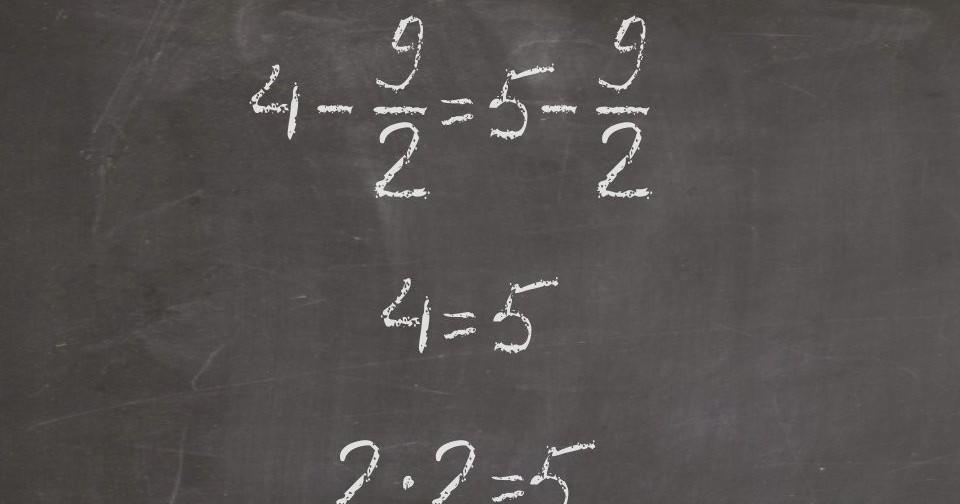 4 - 9/2 = 5 - 9/2
4 = 5
2 · 2 = 5